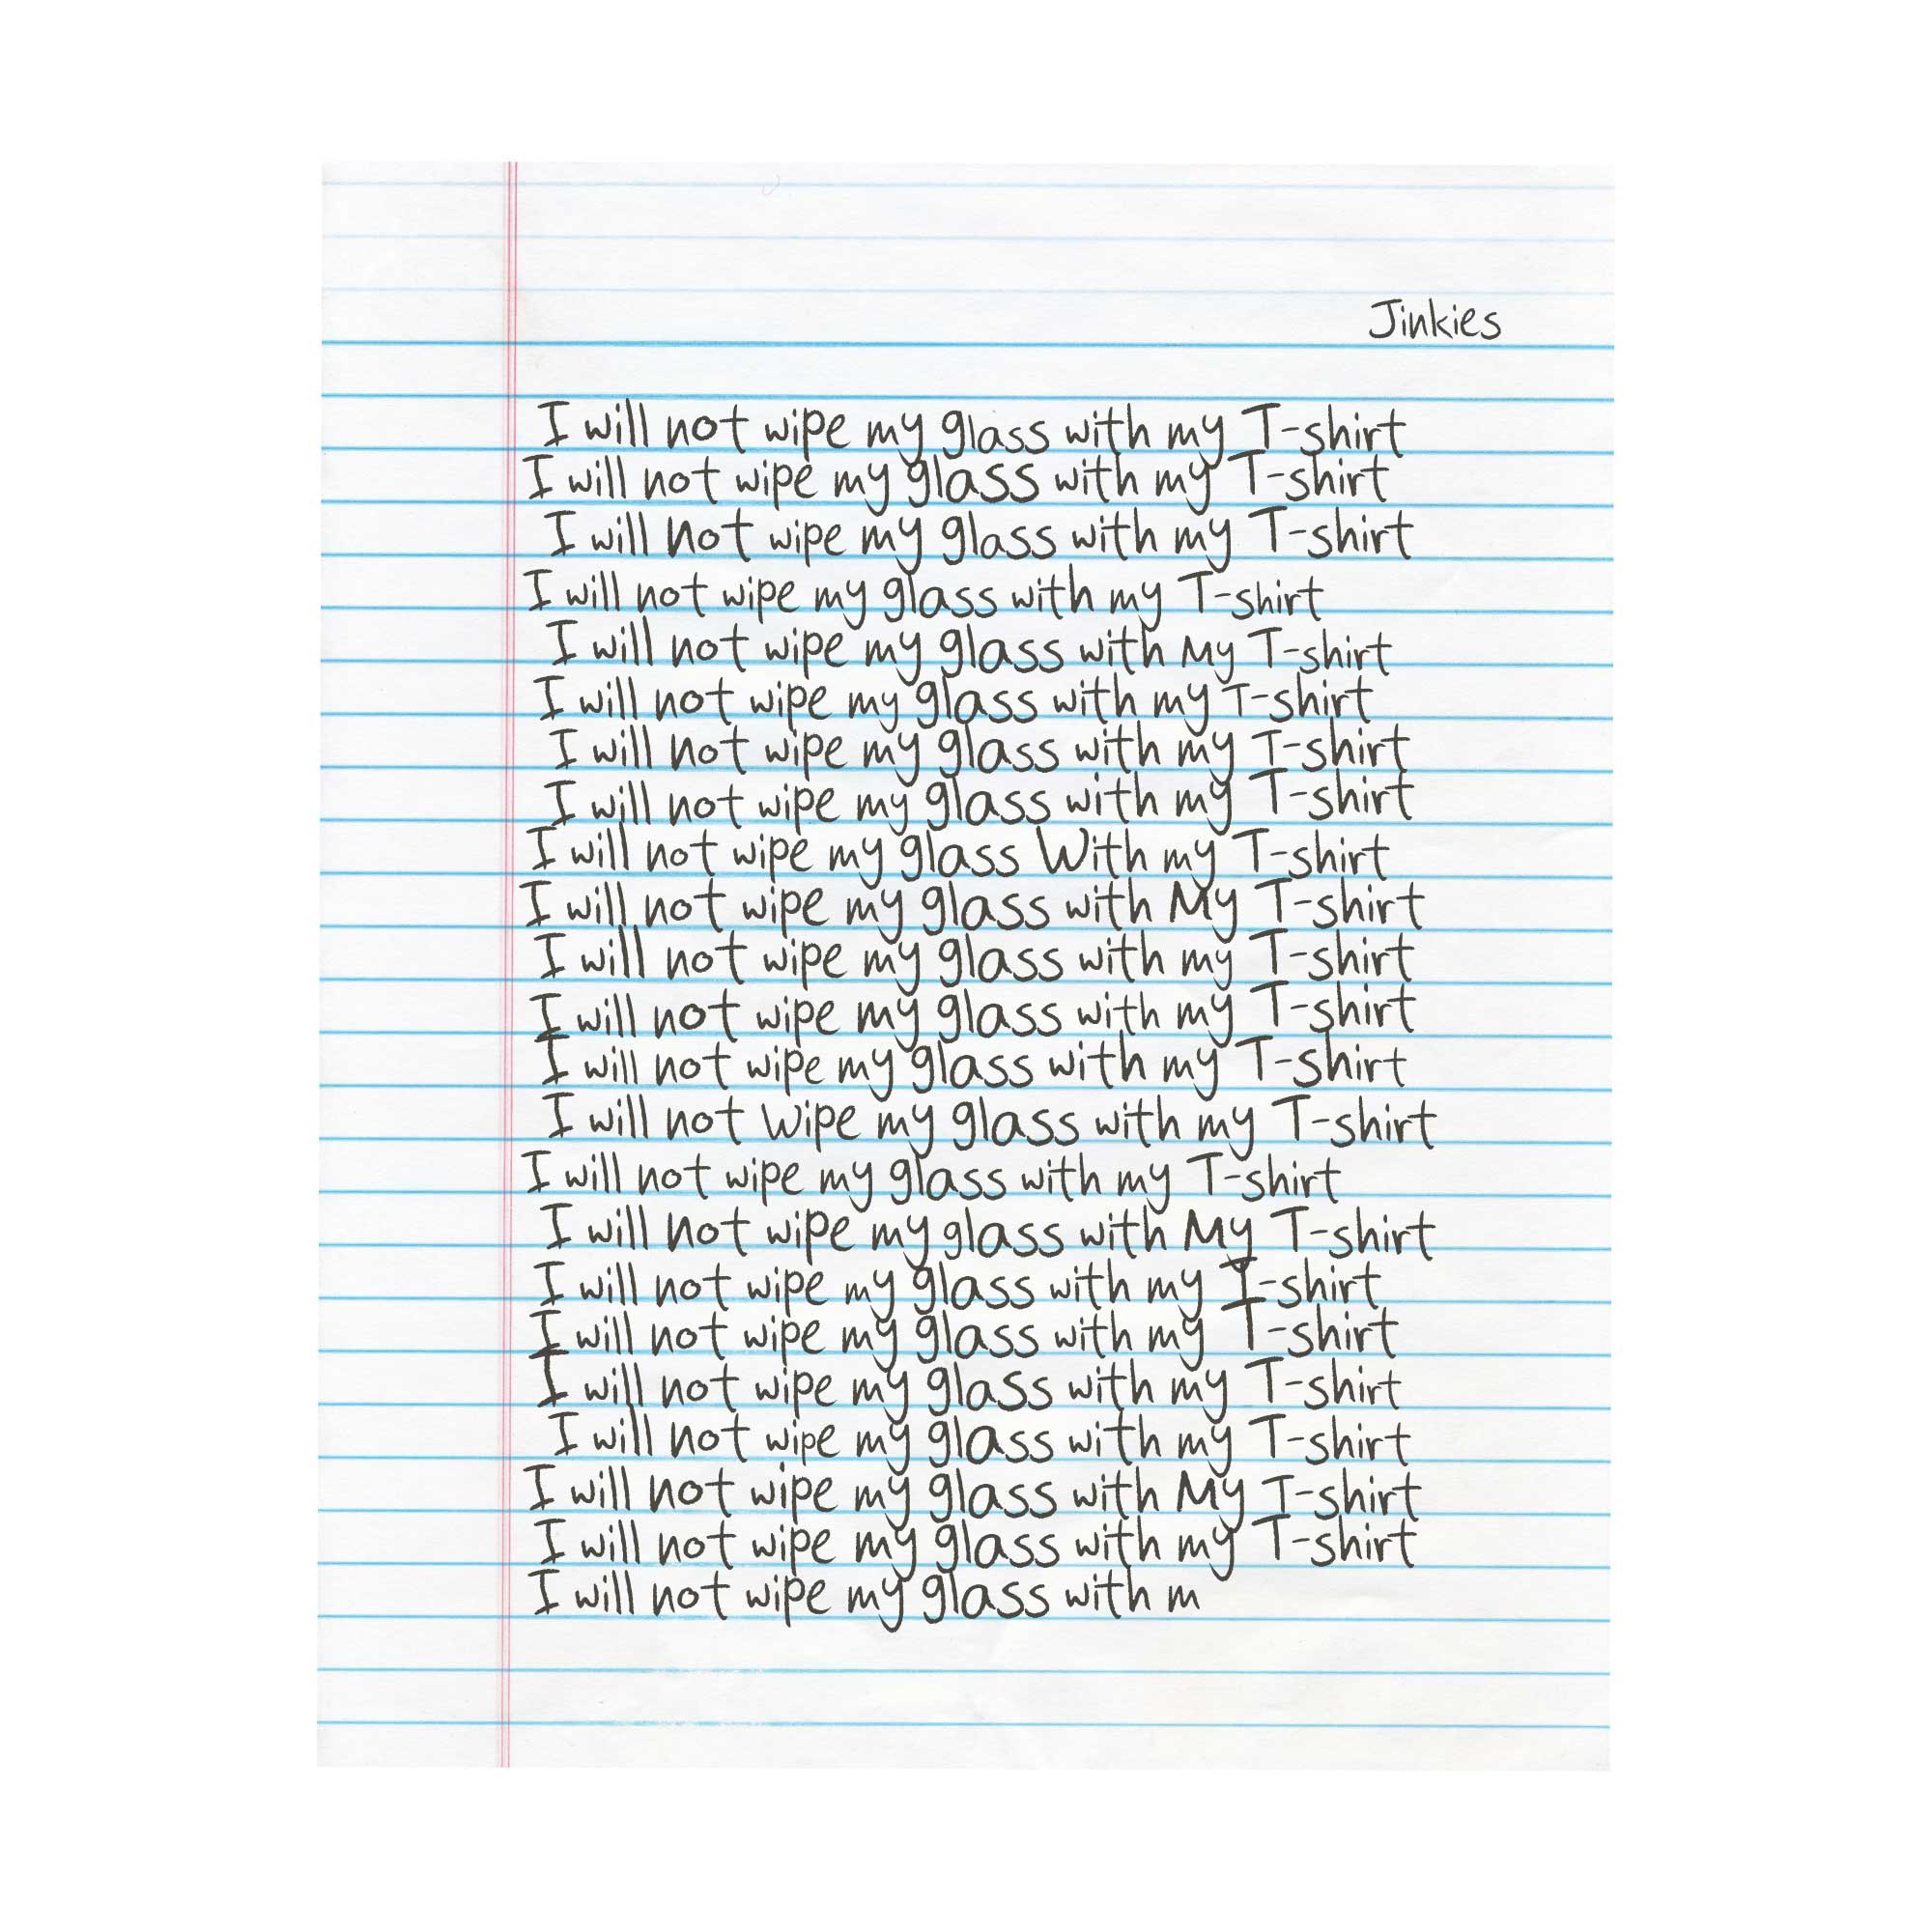 Jinkies
I will not wipe my glass with my T-shirt
I will not wipe my glass with my T-shirt
I will not wipe my glass with my T-shirt
I will not wipe my glass with my T-shirt
I will not wipe my glass with My T-shirt
I will not wipe my glass with my T-shirt
I will not wipe my glass with my T-shirt
I will not wipe my glass with my T-shirt
I will not wipe my glass With my T-shirt
I will not wipe my glass with My T-shirt
I will not wipe my glass with my T-shirt
I will not wipe my glass with my T-shirt
I will not wipe my glass with my T-shirt
I will not Wipe my glass with my T-shirt
I will not wipe my glass with my T-shirt
I will not wipe my glass with My T-shirt
I will not wipe my glass with my T-shirt
I will not wipe my glass with my T-shirt
I will not wipe my glass with my T-shirt
I will not wipe my glass with my T-shirt
I will not wipe my glass with My T-shirt
I will not wipe my glass with my T-shirt
I will not wipe my glass with m